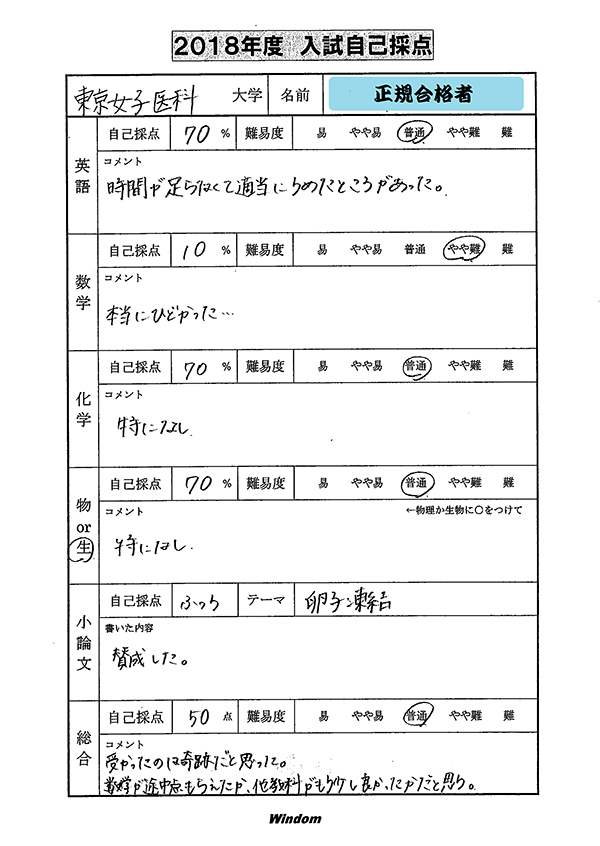 2018年度 入試自己採点
東京女子医科 大学 名前 正規合格者
英語 自己採点 70 % 難易度 易 やや易 普通 やや難 難
コメント
時間が足らなくて適当にうめたところがあった。
数学 自己採点 10 % 難易度 易 やや易 普通 やや難 難
コメント
本当にひどかった…
化学 自己採点 70 % 難易度 易 やや易 普通 やや難 難
コメント
特になし
物or生 自己採点 70 % 難易度 易 やや易 普通 やや難 難
コメント ←物理か生物に○をつけて
特になし.
小論文 自己採点 ふつう テーマ 卵子凍結
書いた内容
賛成した。
総合 自己採点 50 点 難易度 易 やや易 普通 やや難 難
コメント
受かったのは奇跡だと思った。
数学が途中点もらえたか、他教科がもう少し良かったかだと思う。
Windom